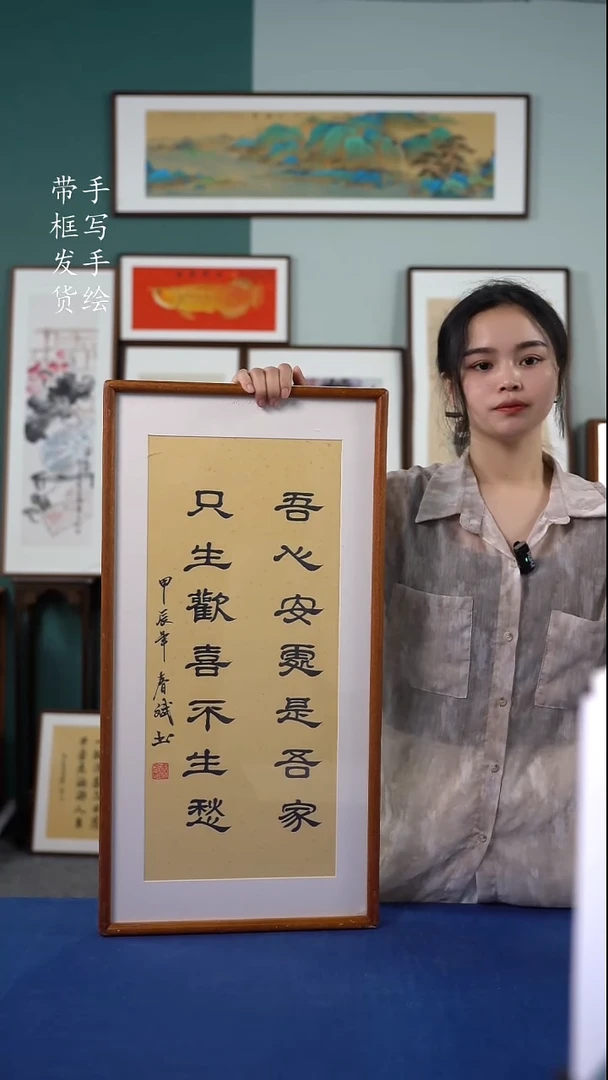 手写手绘
带框发货
吾心安處是吾家
只生歡喜不生愁
甲辰年春斌书